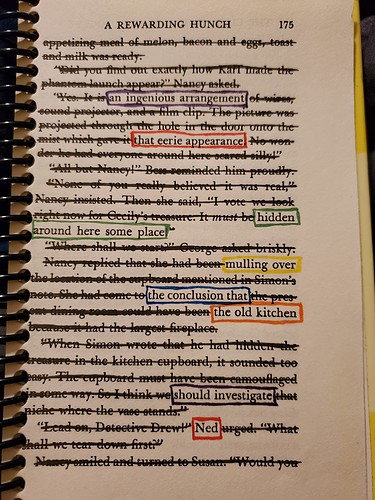 A REWARDING HUNCH 175
appetizing meal of melon, bacon and eggs, toast
and milk was ready.
"Did you find out exactly how Karl made the
phantom launch appear?" Nancy asked.
"Yes. It is an ingenious arrangement of wires,
sound projector, and a film clip. The picture was
projected through the hole in the door onto the
mist which gave it that eerie appearance. No won-
der he had everyone around here scared silly!"
"All but Nancy!" Bess reminded him proudly.
"None of you really believed it was real,"
Nancy insisted. Then she said, "I vote we look
right now for Cecily's treasure. It must be hidden
around here some place."
"Where shall we start?" George asked briskly.
Nancy replied that she had been mulling over
the location of the cupboard mentioned in Simon's
note. She had come to the conclusion that the pres-
ent dining room could have been the old kitchen
because it had the largest fireplace.
"When Simon wrote that he had hidden the
treasure in the kitchen cupboard, it sounded too
easy. The cupboard must have been camouflaged
in some way. So I think we should investigate that
niche where the vase stands."
"Lead on, Detective Drew!" Ned urged. "What
shall we tear down first?"
Nancy smiled and turned to Susan. "Would you